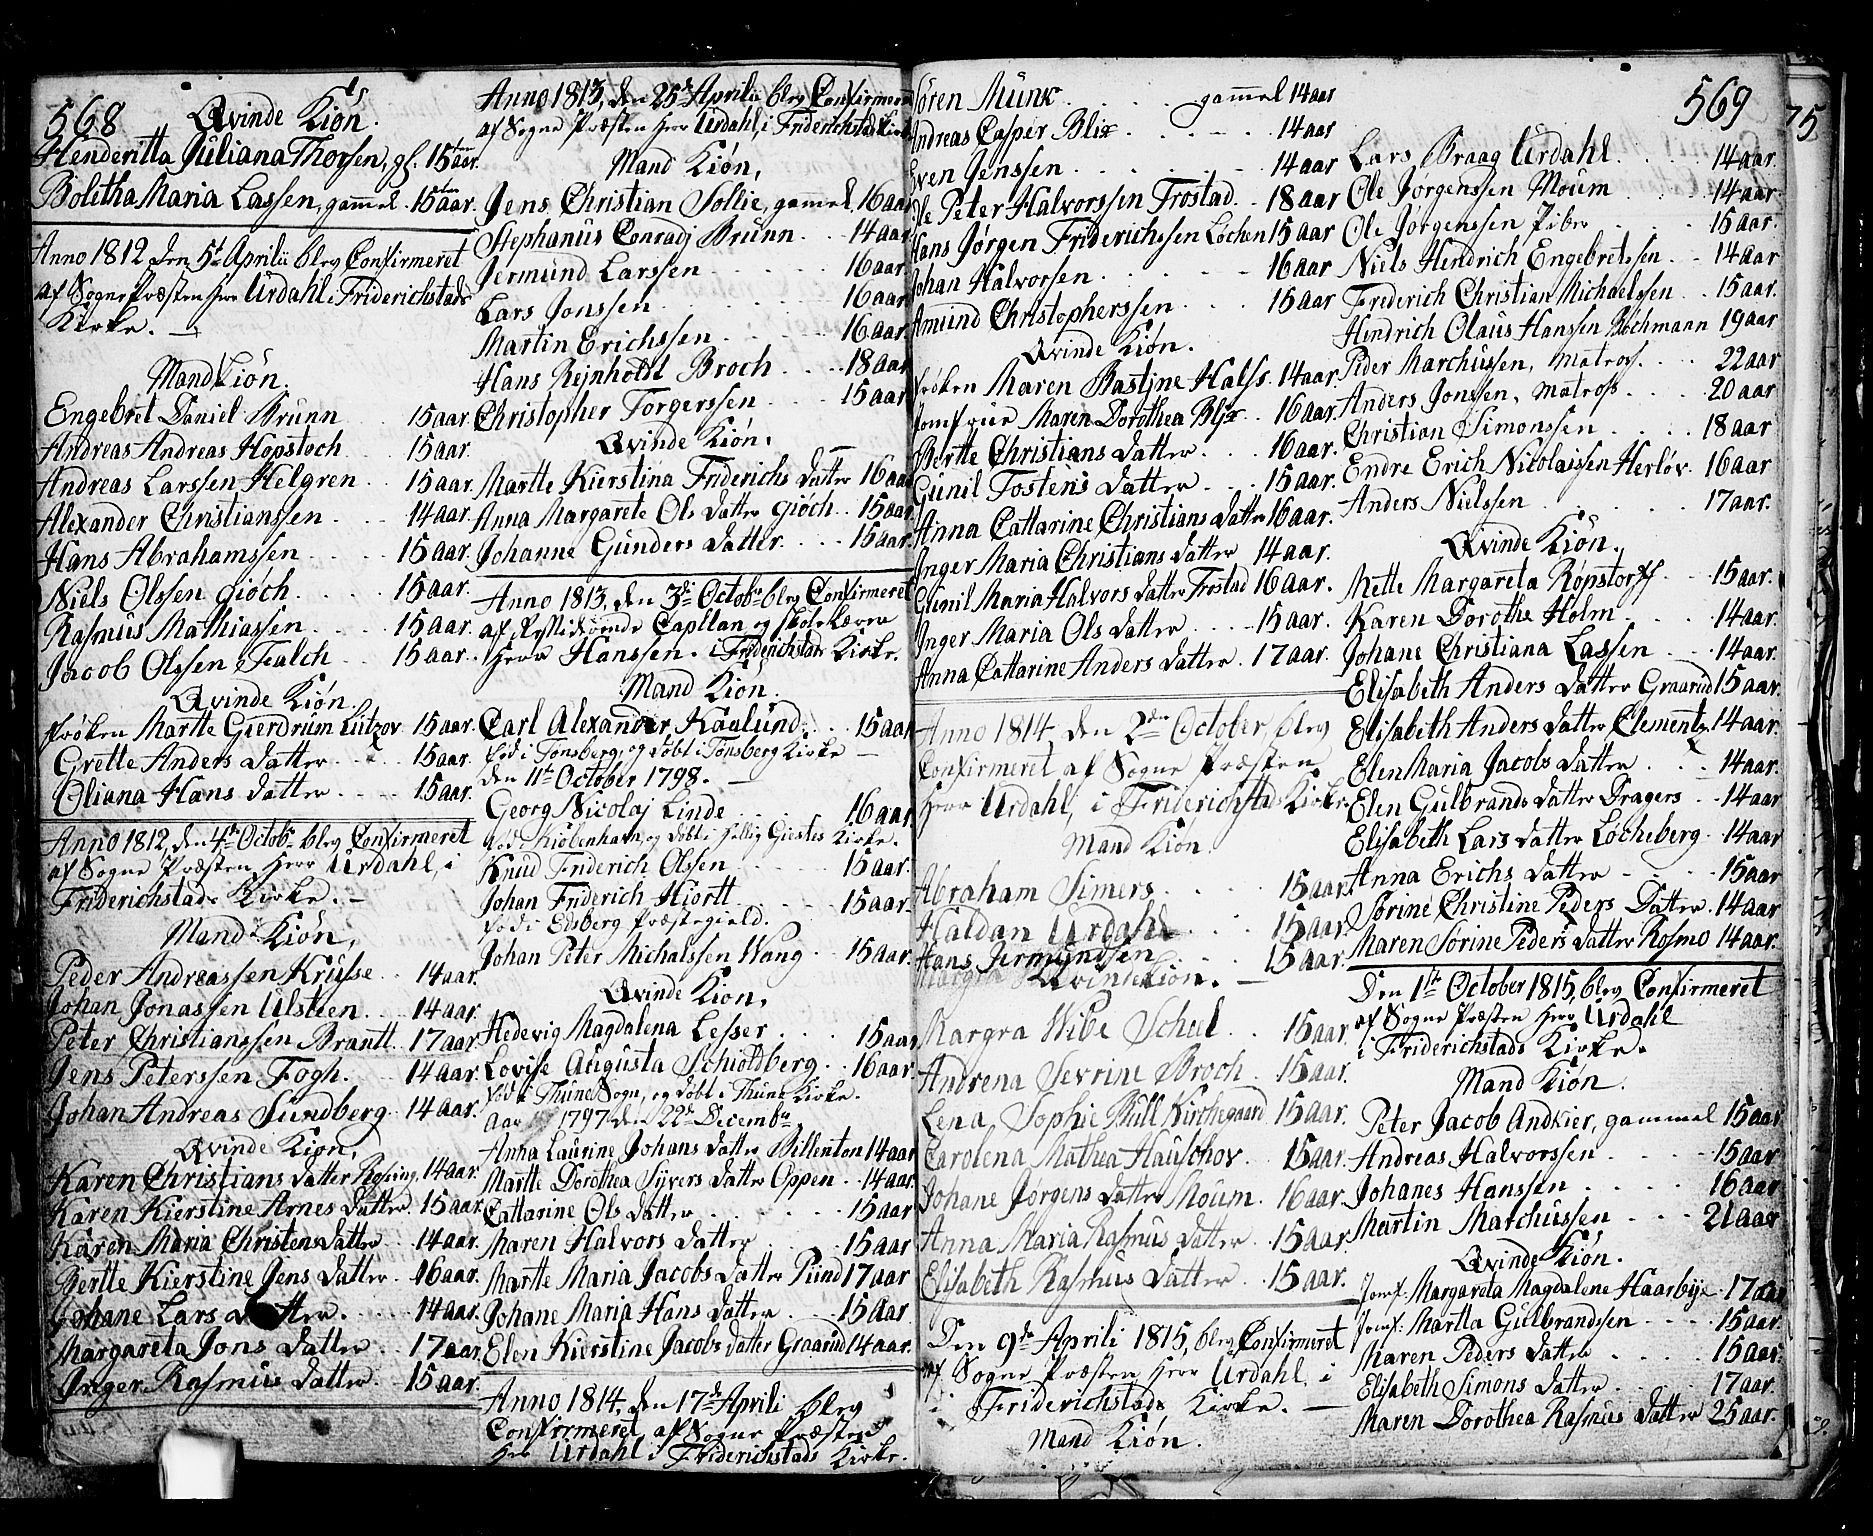 568
Qvinde Kiøn.
Henderitta Juliana Thorsen, gl. 15 aar.
Bolethа Maria Lassen, gammel. 15 aar.
Anno 1812 den 5t Aprilii blev Confirmeret
af Sogne Præsten Herr Urdahl i Friderichstads
Kirke. —
Mand Kiøn.
Engebret Daniel Brunn 15 aar
Andreas Andreas Hopstoch 15 aar.
Andreas Larssen Helgren 15 aar.
Alexander Christianssen 14 aar.
Hans Abrahamssen 15 aar.
Niels Olssen Gioch 15 aar.
Rasmus Mathiassen 15 aar.
Jacob Olssen Falch 15 aar.
Qvinde Kiøn.
Frøken Martte Gierdrum Lützov 15 aar.
Grette Anders Datter 15 aar.
Oliana Hans Datter 15 aar.
Anno 1812, den 4de Octobr blev Confirmeret
af Sogne Præsten Herr Urdahl, i
Friderichstads Kirke. —
Mand Kiøn,
Peder Andreassen Krusse 14 aar.
Johan Jonassen Ulsteen 14 aar.
Peter Christianssen Brantt. 17 aar.
Jens Peterssen Fogh. 14 aar.
Johan Andreas Sundberg 14 aar.
Qvinde Kiøn,
Karen Christians Datter 14 aar.
Karen Kierstine Arnes Datter. 15 aar.
Karen Maria Christens Datter 14 aar.
Bertte Kierstine Jens Datter 16 aar.
Johane Lars Datter. 14 aar.
Margareta Jons Datter 17 aar.
Inger Rasmus Datter 15 aar.
Anno 1813, den 25de Aprilii blev Confirmeret
af Sogne Præsten Herr Urdahl, i Friderichstads Kirke
Mand Kiøn,
Jens Christian Sollie, gammel, 16 aar
Stephanus Conradj Brunn 14 aar
Jermund Larssen 16 aar.
Lars Jonssen 16 aar.
Martin Erichssen 16 aar.
Hans Rejnholdt Broch 18 aar
Christopher Torgerssen 15 aar.
Qvinde Kiøn.
Martte Kierstina Friderichs Datter 16 aar
Anna Margarete Ols Datter Gióch 15 aar.
Johanne Gunders Datter 15 aar.
Anno 1813, den 3de Octobr blev Confirmeret
af Residerende Capellan og Skole Lærer
Herr Hanssen. i Friderichstads Kirke.
Mand Kiøn.
Carl Alexander Kaalund. 15 aar
Fød i Tønsberg, og døbt i Tønsberg Kirke —
den 11te October 1798. —
Georg Nicolaj Linde 16 aar.
Fød i Kiøbenhavn, og døbt i Hellig Geistes Kirke.
Knud Friderich Olssen 15 aar.
Johan Friderich Hiortt 15 aar.
Fød i Edsberg Præstegield.
Johan Peter Michalssen Wang 15 aar.
Qvinde Kiøn,
Hedevig Magdalena Lesser 15 aar,
Lovisse Augusta Schioldberg 16 aar.
Fød i Thune Sogn, og døbt i Thune Kirke.
Aar 1797 den 22de Decembr
Anna Laurine Johans Datter Billenton 14 aar
Martte Dorothea Sÿvers Datter Oppen 14 aar.
Cattarine Ols Datter 15 aar
Maren Halvors Datter 15 aar
Martte Maria Jacobs Datter Pünd 17 aar
Johane Maria Hans Datter 15 aar
Elen Kierstine Jacobs Datter Graarud 14 aar.
Anno 1814, den 17de Aprili blev
Confirmeret af Sogne Præsten
Herr Urdahl i Friderichstads Kirke.
569
Søren Munk gammel 14 aar
Andreas Casper Blix 14 aar
Even Jenssen 14 aar
Ole Peter Halvorssen Frostad 18 aar
Hans Jørgen Friderichssen Lochen 15 aar
Johan Halvorsen 16 aar
Amund Christopherssen 15 aar
Qvinde Kiøn.
Frøken Maren Bastjne Halss 14 aar.
Jomfrue Maren Dorothea Bljx 16 aar.
Bertte Christians Datter 16 aar.
Gunil Tostens Datter 15 aar.
Anna Cattarine Christians Datter 16 aar.
Inger Maria Christians Datter 14 aar.
Gunil Maria Halvors Datter Frostad 16 aar.
Inger Maria Ols Datter 15 aar.
Anna Cattarine Anders Datter. 17 aar.
Anno 1814 den 2den October, blev
Confirmeret af Sogne Præsten
Herr Urdahl, i Friderichstads Kirke
Mand Kiøn.
Abraham Simers 15 aar.
Haldan Urdahl 15 aar.
Hans Jermundsen 15 aar.
Qvinde Kiøn. —
Margra Wibe Scheel 15 aar.
Andrena Sevrine Broch 15 aar.
Lena Sophie Bull Kirchegaard 15 aar.
Carolena Mathea Hauschov. 15 aar.
Johane Jørgens Datter Moum. 16 aar.
Anna Maria Rasmus Datter 15 aar.
Elisabeth Rasmus Datter 15 aar.
Den 9de Aprili 1815, blev Confirmeret
af Sogne Præsten Herr Urdahl, i
i Friderichstads Kirke. —
Mand Kiøn.
Lars Braag Urdahl. 14 aar.
Ole Jørgenssen Moum 14 aar.
Ole Jørgenssen Piber 15 aar.
Niels Hendrich Engebretssen 14 aar
Frederich Christian Michaelssen 15 aar.
Hindrich Olaus Hanssen Bochmann 19 aar
Pider Marchussen, Matros. 22 aar
Anders Jonssen, Matros 20 aar
Christian Simonssen 18 aar
Endre Erich Nicolaissen Herløv 16 aar
Anders Nielssen 17 aar.
Qvinde Kiøn.
Mette Margareta Røpstorff 15 aar.
Karen Dorothe Holm 14 aar.
Johane Christiana Lassen 14 aar.
Elisabeth Anders Datter Graarud 15 aar.
Elisabeth Anders Datter Clementz 14 aar.
Elen Maria Jacobs Datter 14 aar.
Elen Gulbrands Datter Dragers 14 aar
Elisabeth Lars Datter Locheberg 14 aar
Anna Erichs Datter 15 aar
Sørine Christine Peders Datter 14 aar
Maren Sørine Peders Datter Rosmo 14 aar.
Den 1ste October 1815, blev Confirmeret
af Sogne Præsten Herr Urdahl
i Friderichstads Kirke.
Mand Kiøn.
Peter Jacob Andkier, gammel 15 aar
Andreas Halvorssen 15 aar
Johanes Hanssen 16 aar
Martin Marchussen 21 aar
Qvinde Kiøn.
Jomf. Margareta Magdalene Haarbÿe 17 aar
Jomf: Martta Gulbrandssen 15 aar.
Maren Peders Datter 15 aar.
Elisabeth Simons Datter 17 aar.
Maren Dorothea Rasmus Datter 25 aar.
75